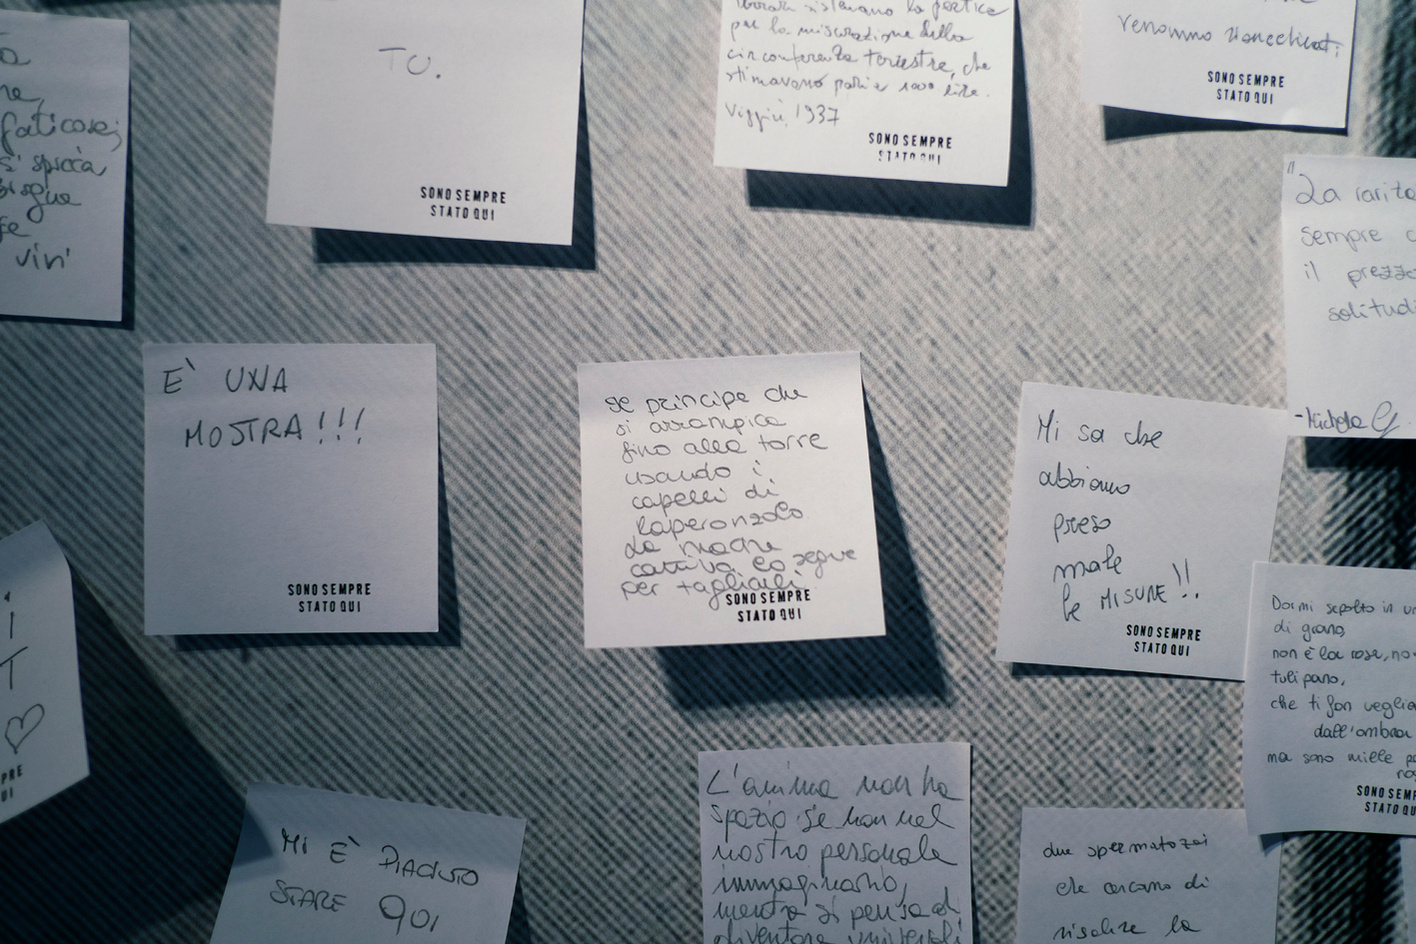 faticose;
si spicca,
bisogna
vin'
TU.
SONO SEMPRE
STATO QUI
sistemano la
per la misurazione della
circonferenza terrestre, che
stimavano pari a 1000 lire.
Viggiù 1937
SONO SEMPRE
STATO QUI
venommo
SONO SEMPRE
STATO QUI
"La rarità
sempre
il prezzo
solitudi
- Michela G.
E' UNA
MOSTRA!!!
SONO SEMPRE
STATO QUI
Se principe che
si arrampica
fino alla torre
usando i
capelli di
Raperonzolo
La madre
cattiva lo segue
per tagliarli
SONO SEMPRE
STATO QUI
Mi sa che
abbiamo
preso
male
le MISURE!!
SONO SEMPRE
STATO QUI
Dormi sepolto in un
di grano,
non è la rosa, no
tuli pano,
che ti fan veglia
dall'ombra
ma sono mille pa
ro
SONO SEMP
STATO QU
I
T
PRE
UI
MI È PIACIUTO
STARE QUI
L'anima non ha
spazio se non nel
nostro personale
immaginario,
mentre si pensa di
diventare universali
due spermatozoi
che cercano di
risalire la